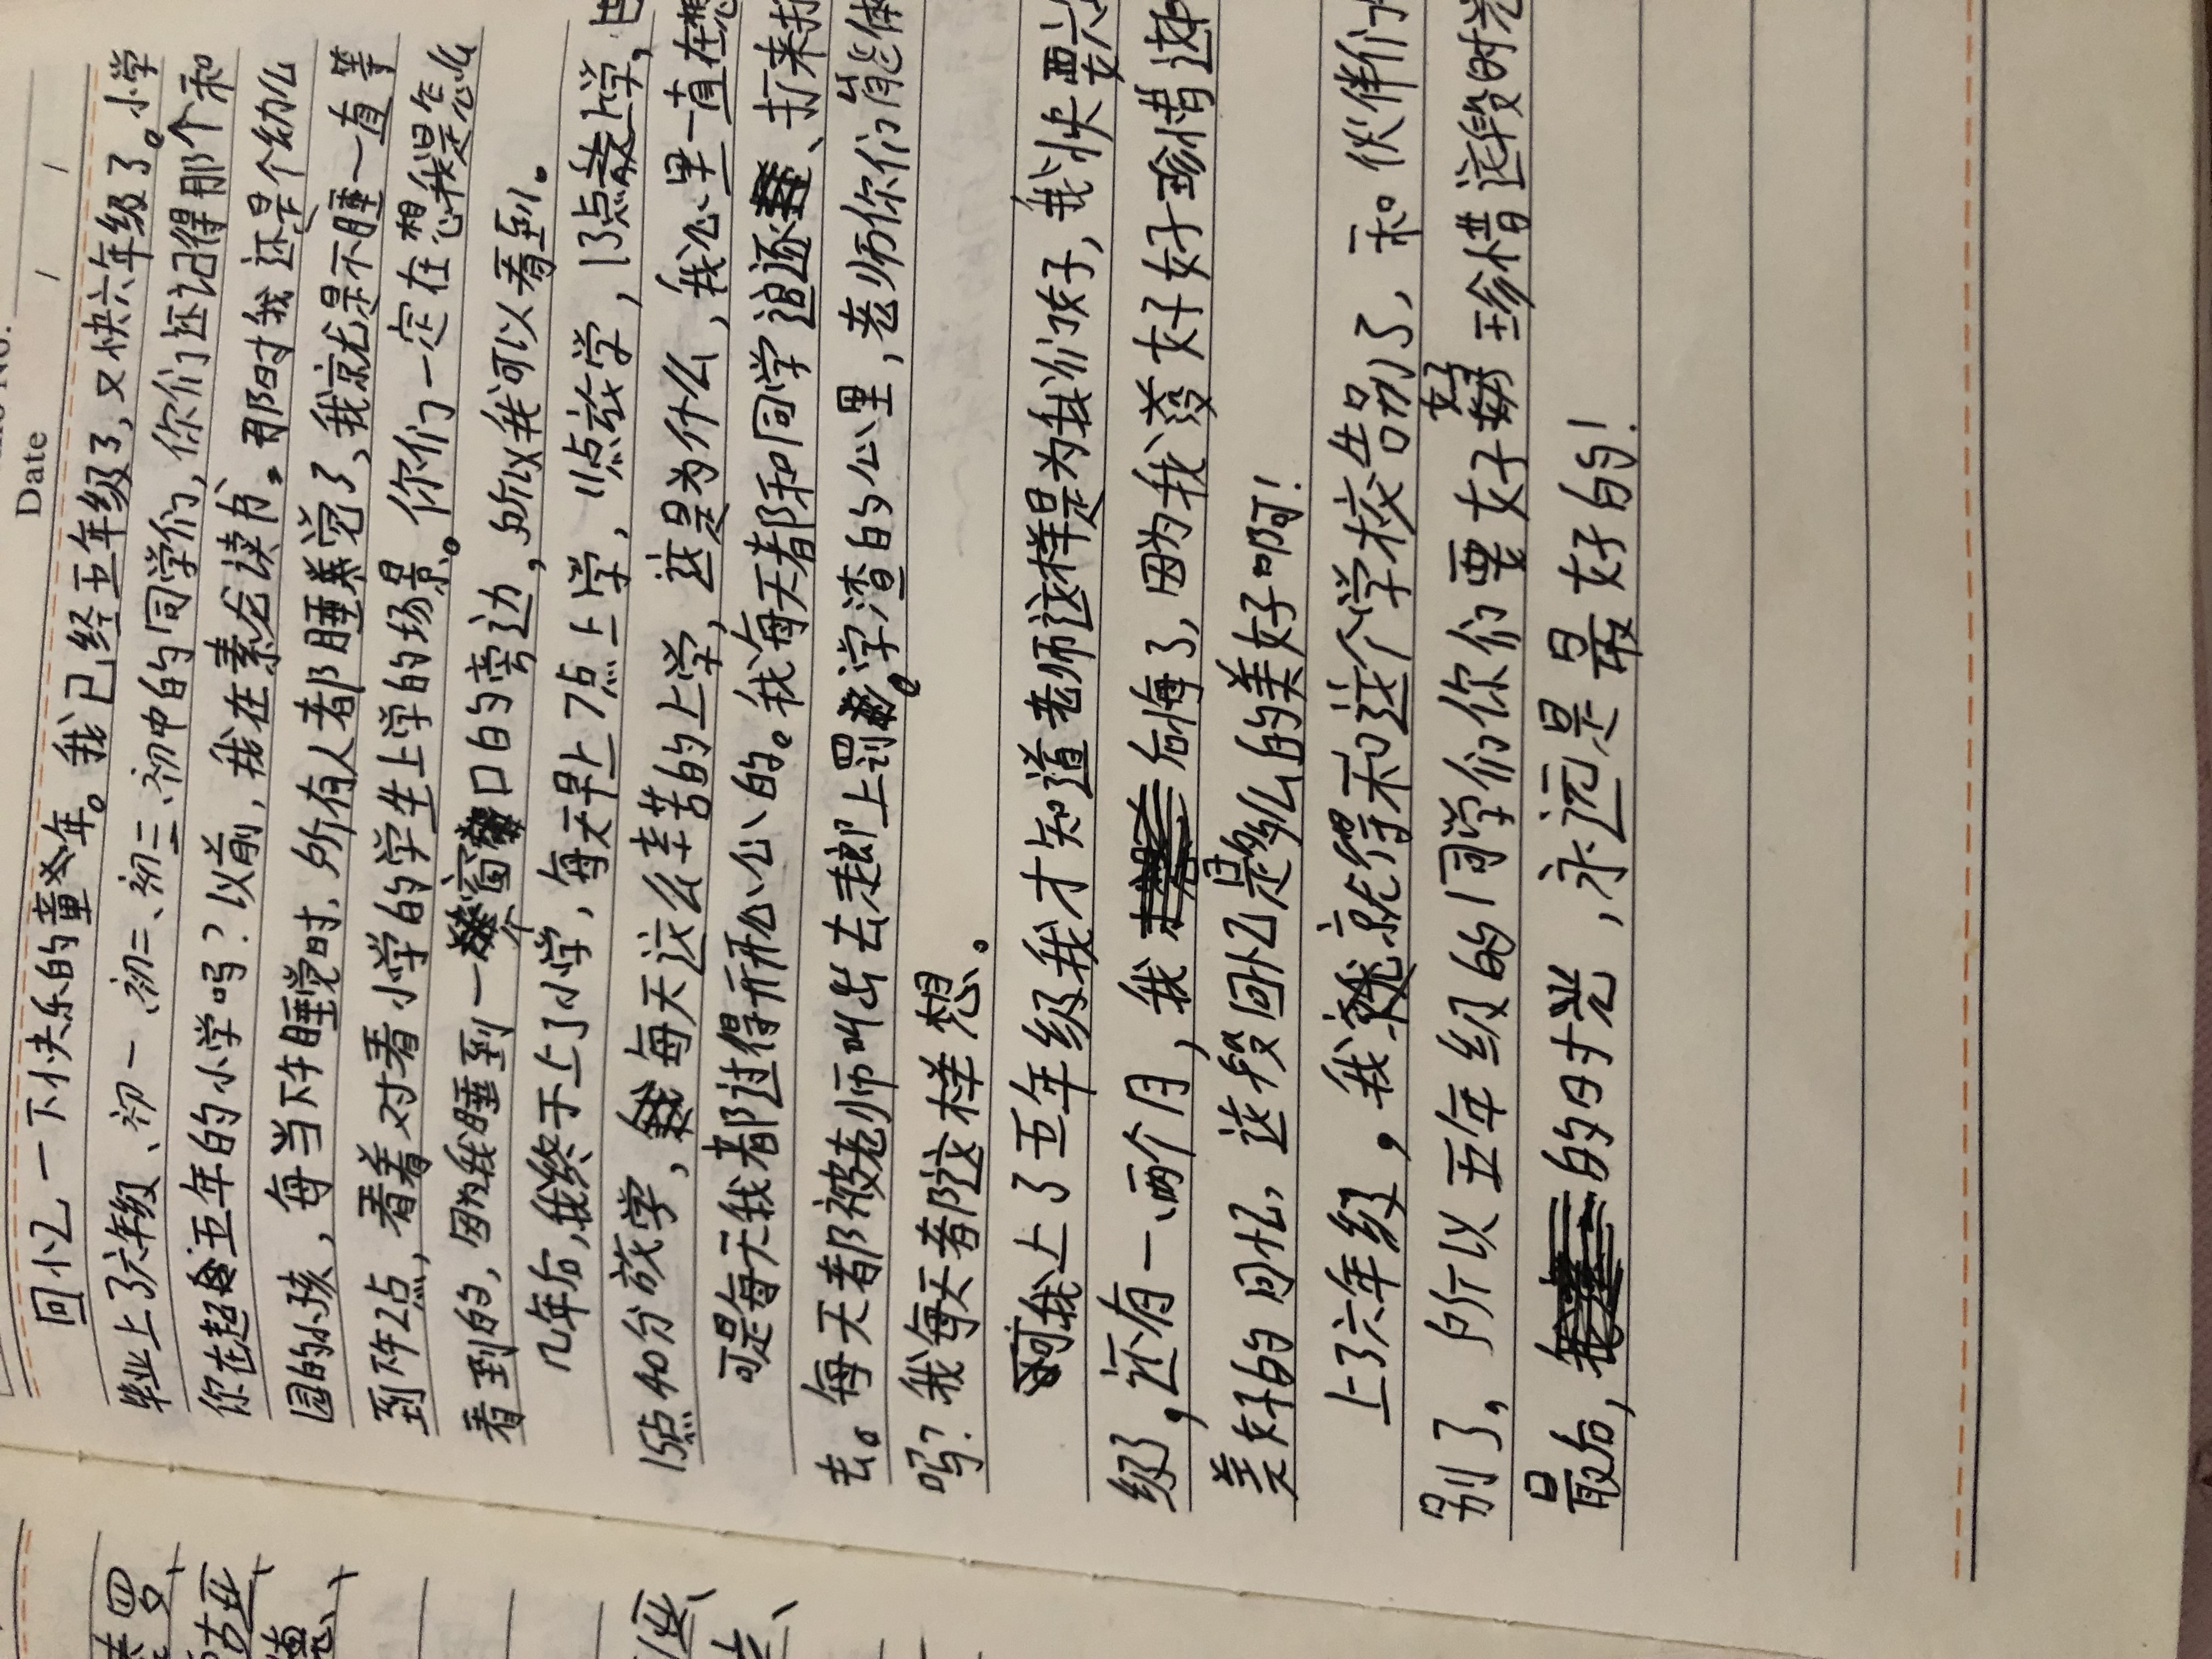 Date / /
回忆一下快乐的童年。我已经五年级了,又快六年级了。小学
毕业上了六年级、初一、初二、初三、初中的同学们,你们还记得那个和
你在起五年的小学吗?以前,我在素龙读书。那时我还是个幼么
园的小孩,每当下午睡觉时,所有人都睡觉了,我就是不睡一直等
到下午2点,看着对看小学的学生上学的场景。你们一定在想我是怎么
看到的,因为我睡到一个窗口的旁边,所以我可以看到。
几年后,我终于上了小学,每天早上7点上学,11点放学,13点上学,
15点40分放学,我每天这么辛苦的上学,这是为什么,我心里一直在想
可是每天我都过得开开心心的。我每天都和同学追逐、打来打
去。每天都被老师叫出去走郎上罚。学渣的心里,老师你们能体
吗?我每天都这样想。
我上了五年级我才知道老师这样是为我们好,我快要六
级了,还有一、两个月,我后悔了,因为我没好好珍惜这
美好的回忆,这段回忆是多么的美好啊!
上了六年级,我就得和这个学校告别了,和伙伴们
别了。所以五年级的同学们你们要好好珍惜这段时光
最后,的时光,永远是最好的!